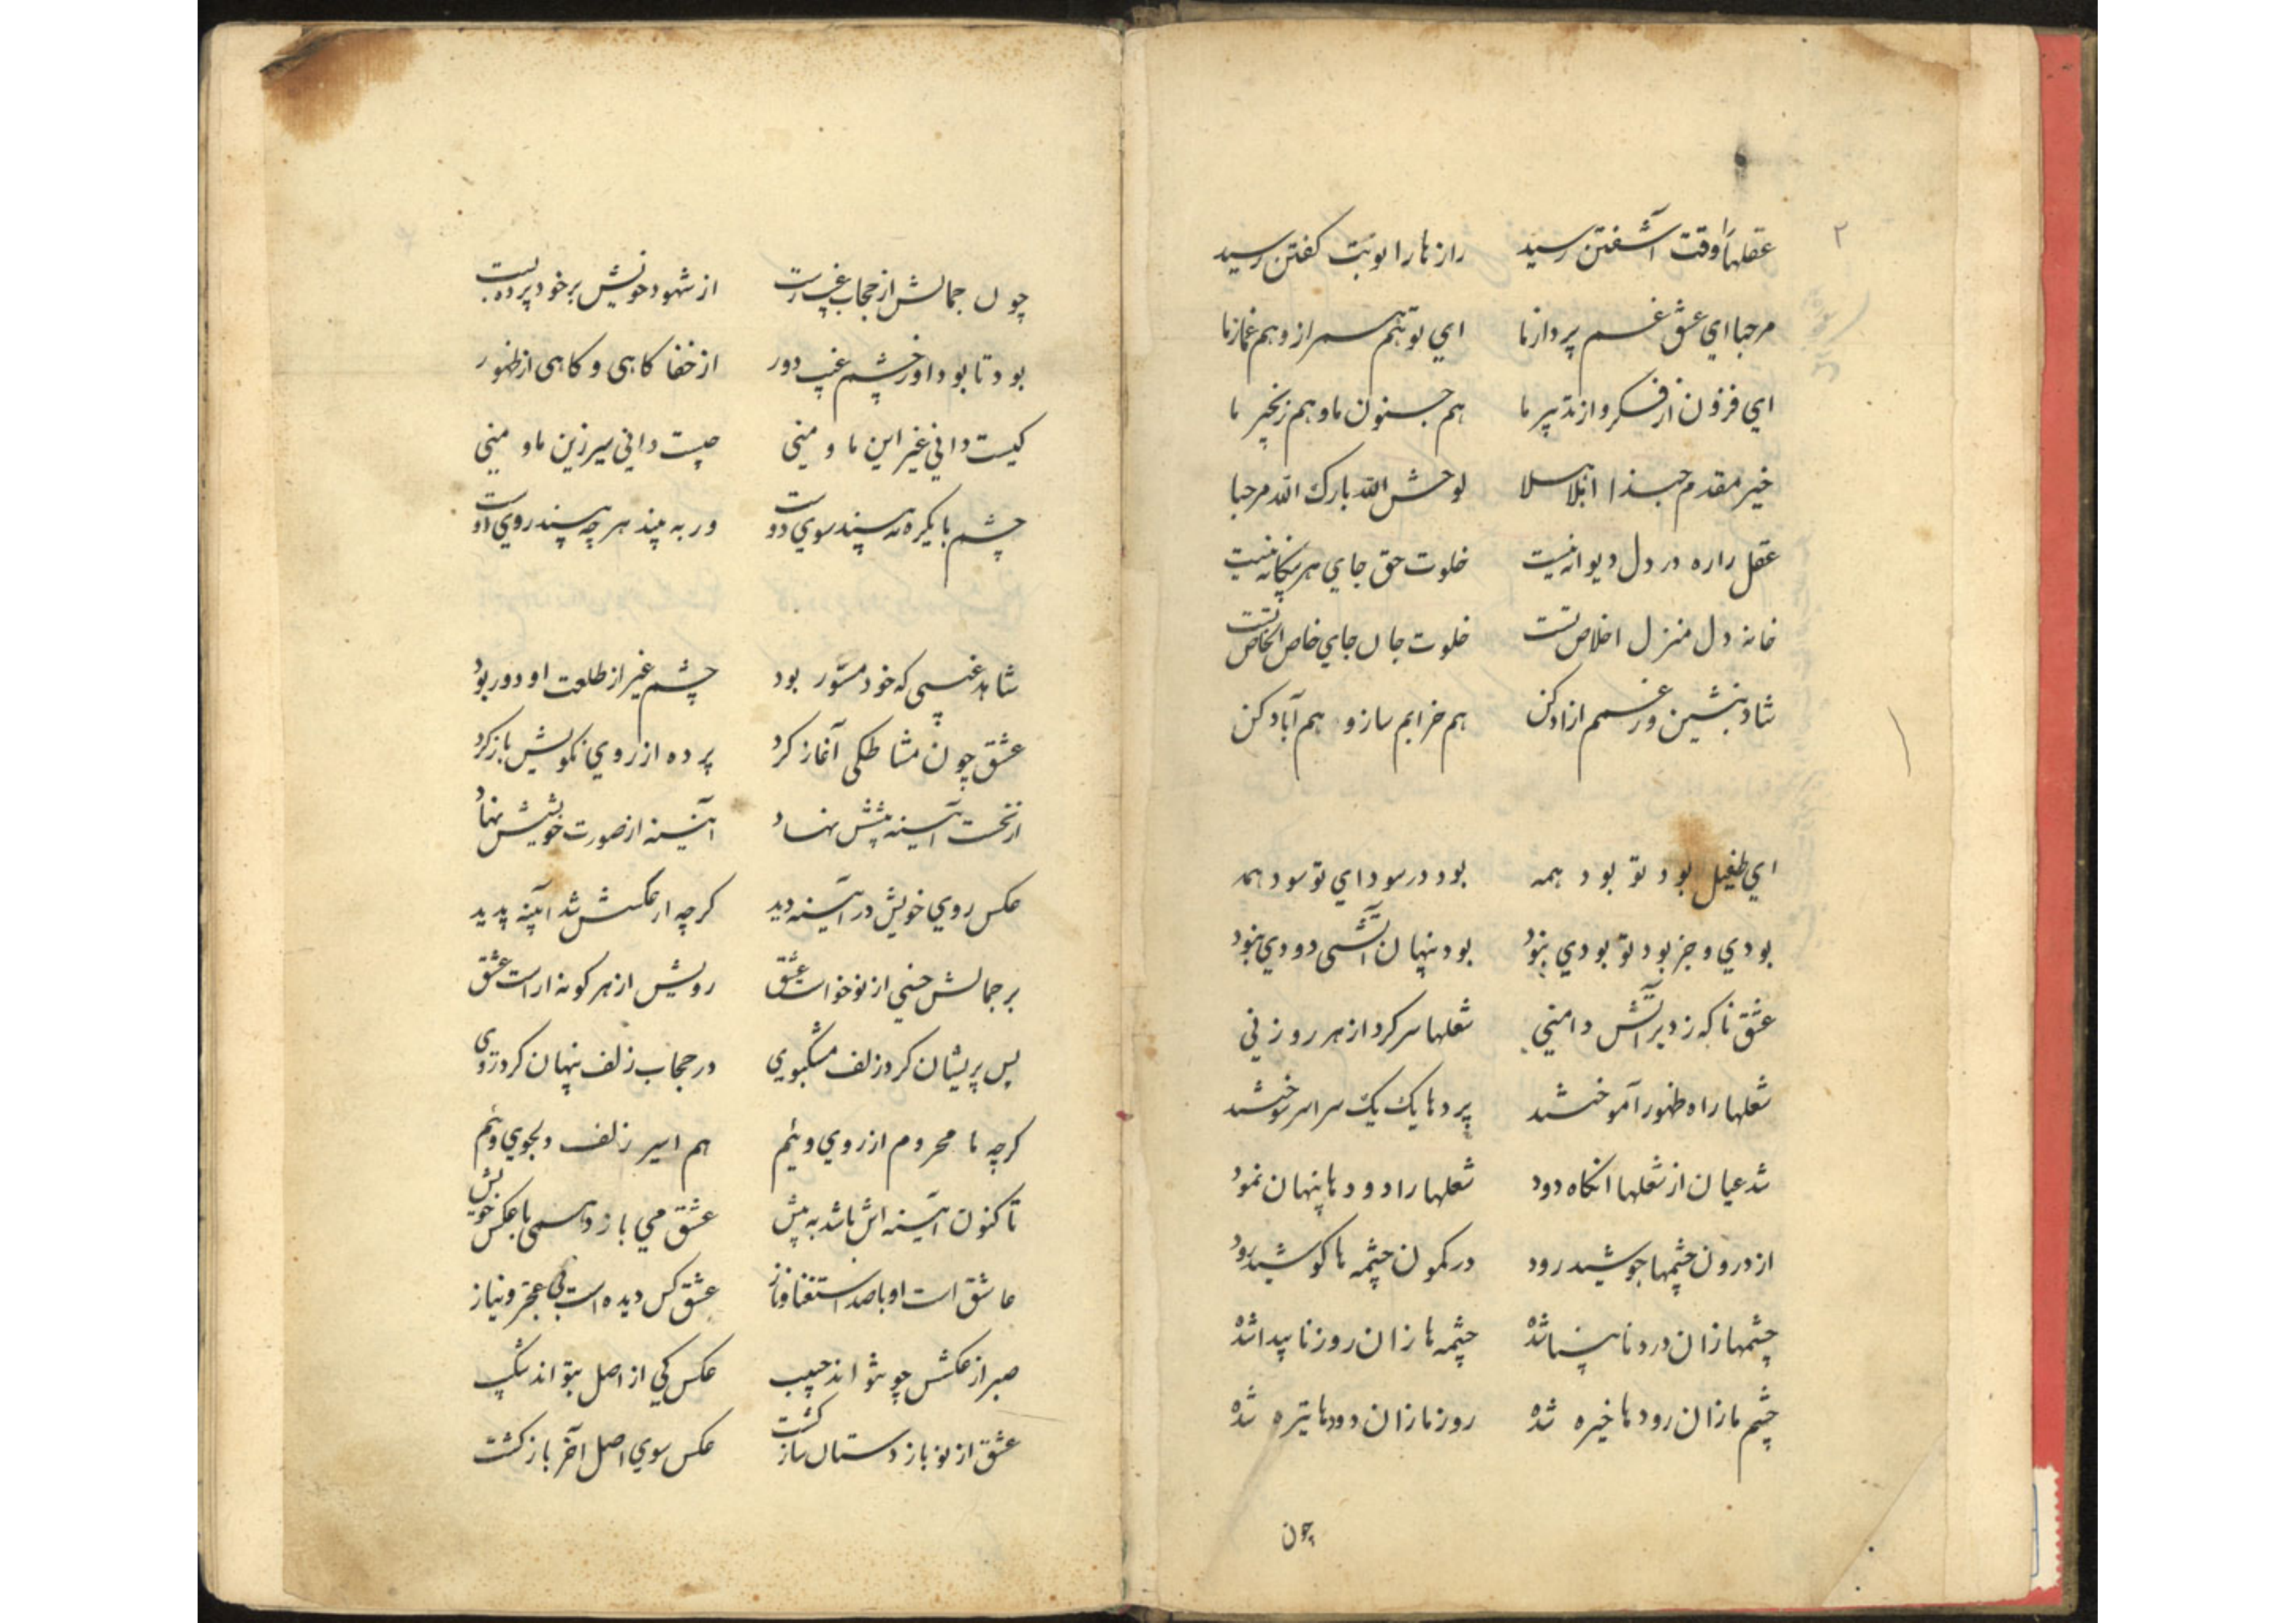 ۲
عقلها را وقت آشفتن رسید رازها را نوبت کفتن رسید
مرحبا ای عشق غم پرداز ما ای تو هم همراز و هم غماز ما
ای فزون از فکر و از تدبیر ما هم جنون ما و هم زنجیر ما
خیر مقدم حبذا اهلا وسهلا لوحش الله بارک الله مرحبا
عقل را ره در دل دیوانه نیست خلوت حق جای هر بیکانه نیست
خانه دل منزل اخلاص تست خلوت جان جای خاص الخاص تست
شاد بنشین و ز غمم ازاد کن هم خرابم ساز و هم آباد کن
ای طفیل بود تو بود همه بود در سودای تو سود همه
بودی و جز بود تو بودی نبود بود پنهان آتشی دودی نبود
عشق ناکه زد بر آتش دامنی شعلها سر کرد از هر روزنی
شعلها راه ظهور آموختند پردها یک یک سراسر سوختند
شد عیان از شعلها انکاه دود شعلها را دودها پنهان نمود
از درون چشمها جوشید رود در کمون چشمه ها کوشید رود
چشمها زان رود نابینا شد چشمه ها زان رود ناپیدا شد
چشم ما زان رودها خیره شد روز ما زان دودها تیره شد
چون
چون جمالش از حجاب غیب رست از شهود خویش بر خود پرده بست
بود تا بود او ز چشم غیب دور از خفا کاهی و کاهی از ظهور
کیست دانی غیر این ما و منی چیست دانی سیر زین ما و منی
چشم ما یکره نه بیند سوی دوست ور به بیند هر چه بیند روی اوست
شاهد غیبی که خود مستور بود چشم غیر از طلعت او دور بود
عشق چون مشاطکی آغاز کرد پرده از روی نکویش باز کرد
از نخست آیینه پیشش نهاد آیینه از صورت خویشش نهاد
عکس روی خویش در آیینه دید کرچه از عکسش شد آیینه پدید
بر جمالش حسنی از نو خواست عشق رویش از هر کونه اراست عشق
پس پریشان کرد زلف مشکبوی در حجاب زلف پنهان کرد روی
کرچه ما محروم از روی ویئم هم اسیر زلف دلجوی ویئم
تا کنون آیینه اش باشد به پیش عشق می بازد همی با عکس خویش
عاشق است او با صد استغنا و ناز عشق کس دیده است بی عجز و نیاز
صبر از عکسش چو نتواند حبیب عکس کی از اصل بتواند شکیب
عشق از نو باز دستان ساز کشت عکس سوی اصل آخر باز کشت